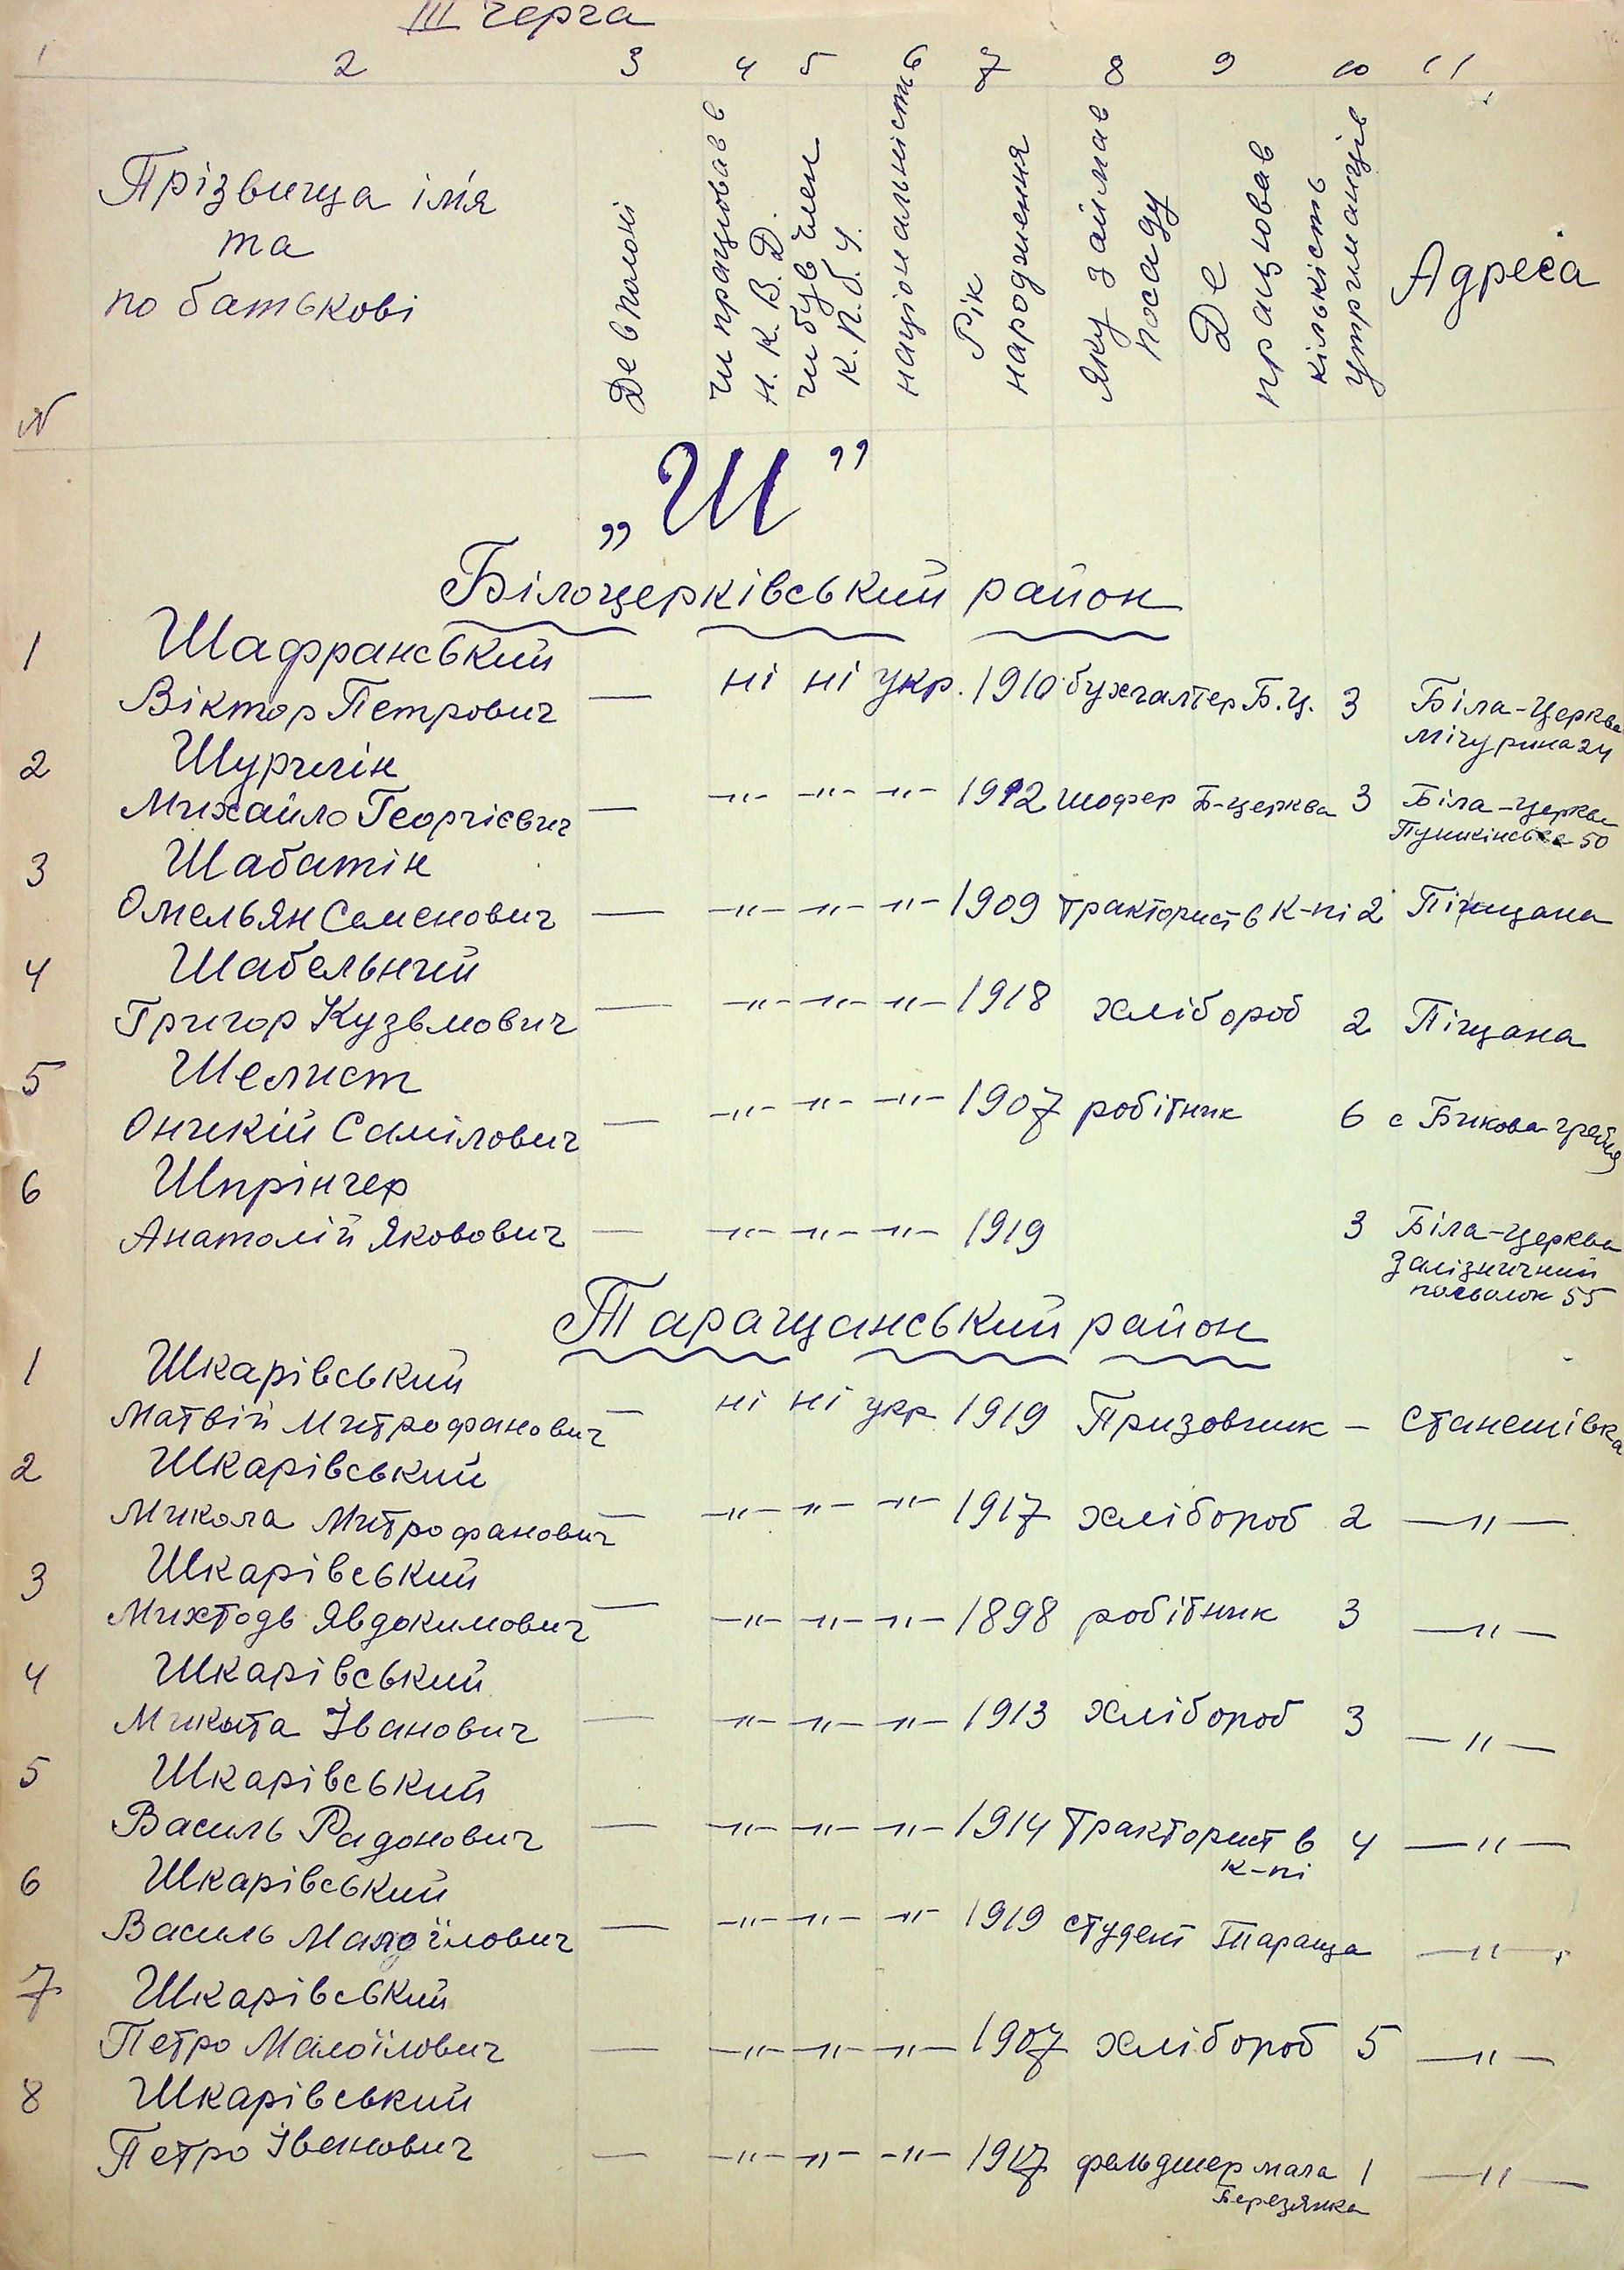 III черга
1 2 3 4 5 6 7 8 9 10 11
N
Прізвища ім'я
та
по батькові
Де в полоні
чи працював в
Н. К. В. Д.
чи був член
К. П. б. У.
національність
Рік
народження
Яку займав
посаду
Де
працював
кількість
утриманців
Адреса
„Ш”
Білоцерківський район
1 Шафранський
Віктор Петрович — ні ні укр. 1910 бухгалтер Б.Ц. 3 Біла-Церква
Мічуріна 24
2 Шургін
Михайло Георгієвич — -"- -"- -"- 1912 шофер Б-церква 3 Біла-Церква
Пушкінська 50
3 Шабатін
Омельян Семенович — -"- -"- -"- 1909 тракторист в к-пі 2 Піщана
4 Шабельний
Григор Кузьмович — -"- -"- -"- 1918 хлібороб 2 Піщана
5 Шелист
Оникій Самілович — -"- -"- -"- 1907 робітник 6 с Бикова гребля
6 Шпрінгер
Анатолій Якович — -"- -"- -"- 1919 3 Біла-Церква
Залізничний
посьолок 55
Таращанський район
1 Шкарівський
Матвій Митрофанович — ні ні укр 1919 Призовник — Станешівка
2 Шкарівський
Микола Митрофанович — -"- -"- -"- 1917 хлібороб 2 —"—
3 Шкарівський
Михтодь Явдокимович — -"- -"- -"- 1898 робітник 3 —"—
4 Шкарівський
Микита Іванович — -"- -"- -"- 1913 хлібороб 3 —"—
5 Шкарівський
Василь Радонович — -"- -"- -"- 1914 Тракторист в 4 —"—
к-пі
6 Шкарівський
Василь — -"- -"- -"- 1919 студент Тараща —"—
7 Шкарівський
Петро Малоїлович — -"- -"- -"- 1907 хлібороб 5 —"—
8 Шкарівський
Петро Іванович — -"- -"- -"- 1917 фельдшер мала 1 —"—
Березянка